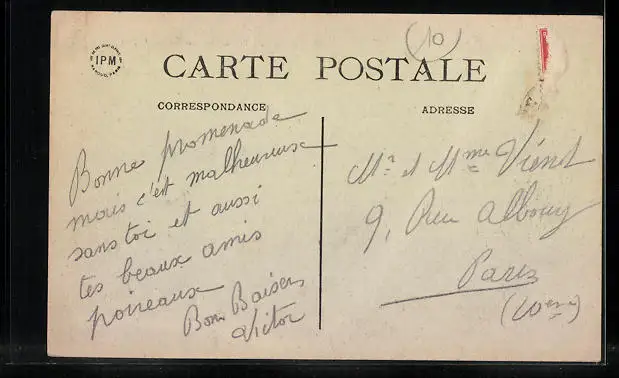 (10)
IPM
CARTE POSTALE
CORRESPONDANCE
ADRESSE
Bonne promenade
mais c'est malheureux
sans toi et aussi
tes beaux amis
poireaux
Bons Baisers
Victor
Mr et Mme Viénot
9, Rue Albouy
Paris
(10eme)